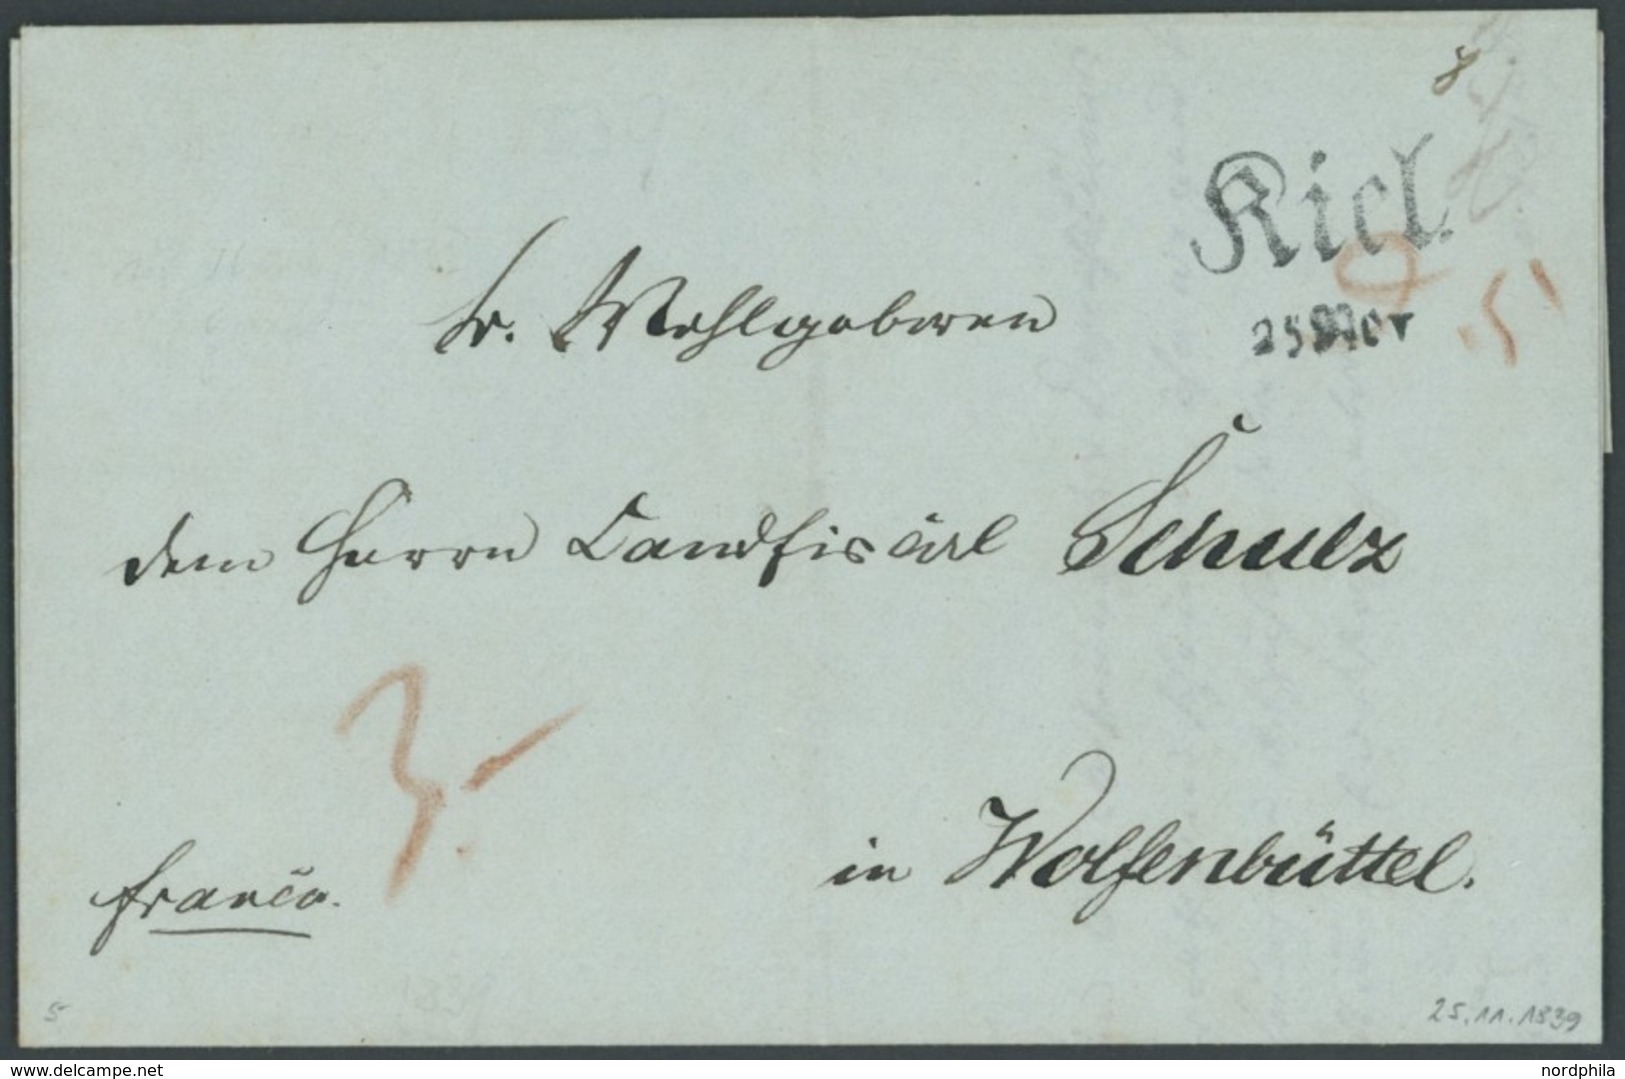 8
Kiel.
25 Nov
Sr. Wohlgeboren
dem Herrn Landfiscal Schulz
3
in Wolfenbüttel.
franco.
5
25.11.1839
www.delcampe.net
nordphila